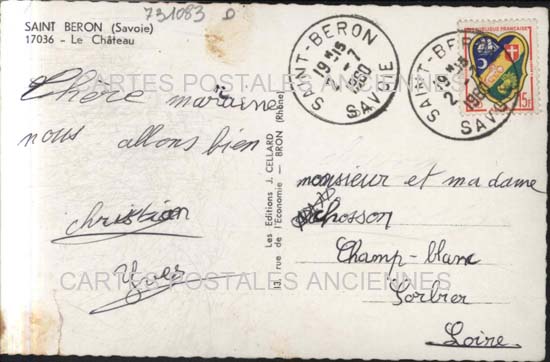 731083 D
SAINT BERON (Savoie)
17036 - Le Château
CARTES POSTALES ANCIENNES
Chère marraine
nous allons bien
christian
Yves
CARTES POSTALES ANCIENNES
Les Editions J. CELLARD
13, rue de l'Economie - BRON (Rhône)
SAINT-BERON
19 15
2 - 7
1960
SAVOIE
SAINT-BERON
19 15
2
SAVOIE
REPUBLIQUE FRANÇAISE
15F
monsieur et ma dame
chosson
Champ-blanc
Sorbier
Loire